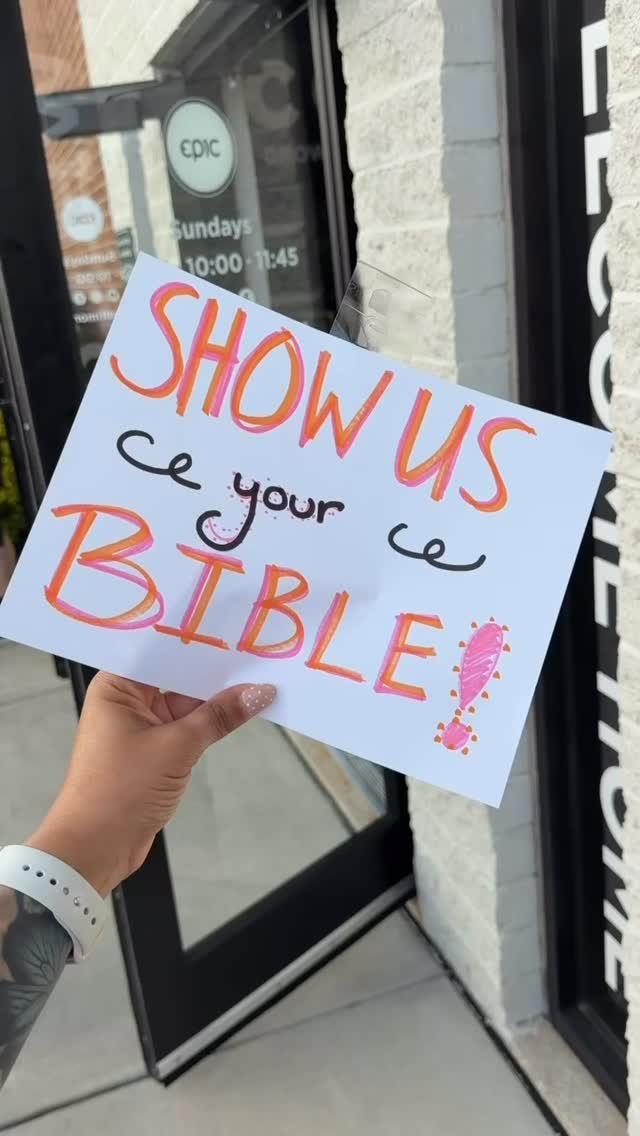 epic
Sundays
10:00 - 11:45
SHOW US
your
BIBLE!
WELCOME HOME